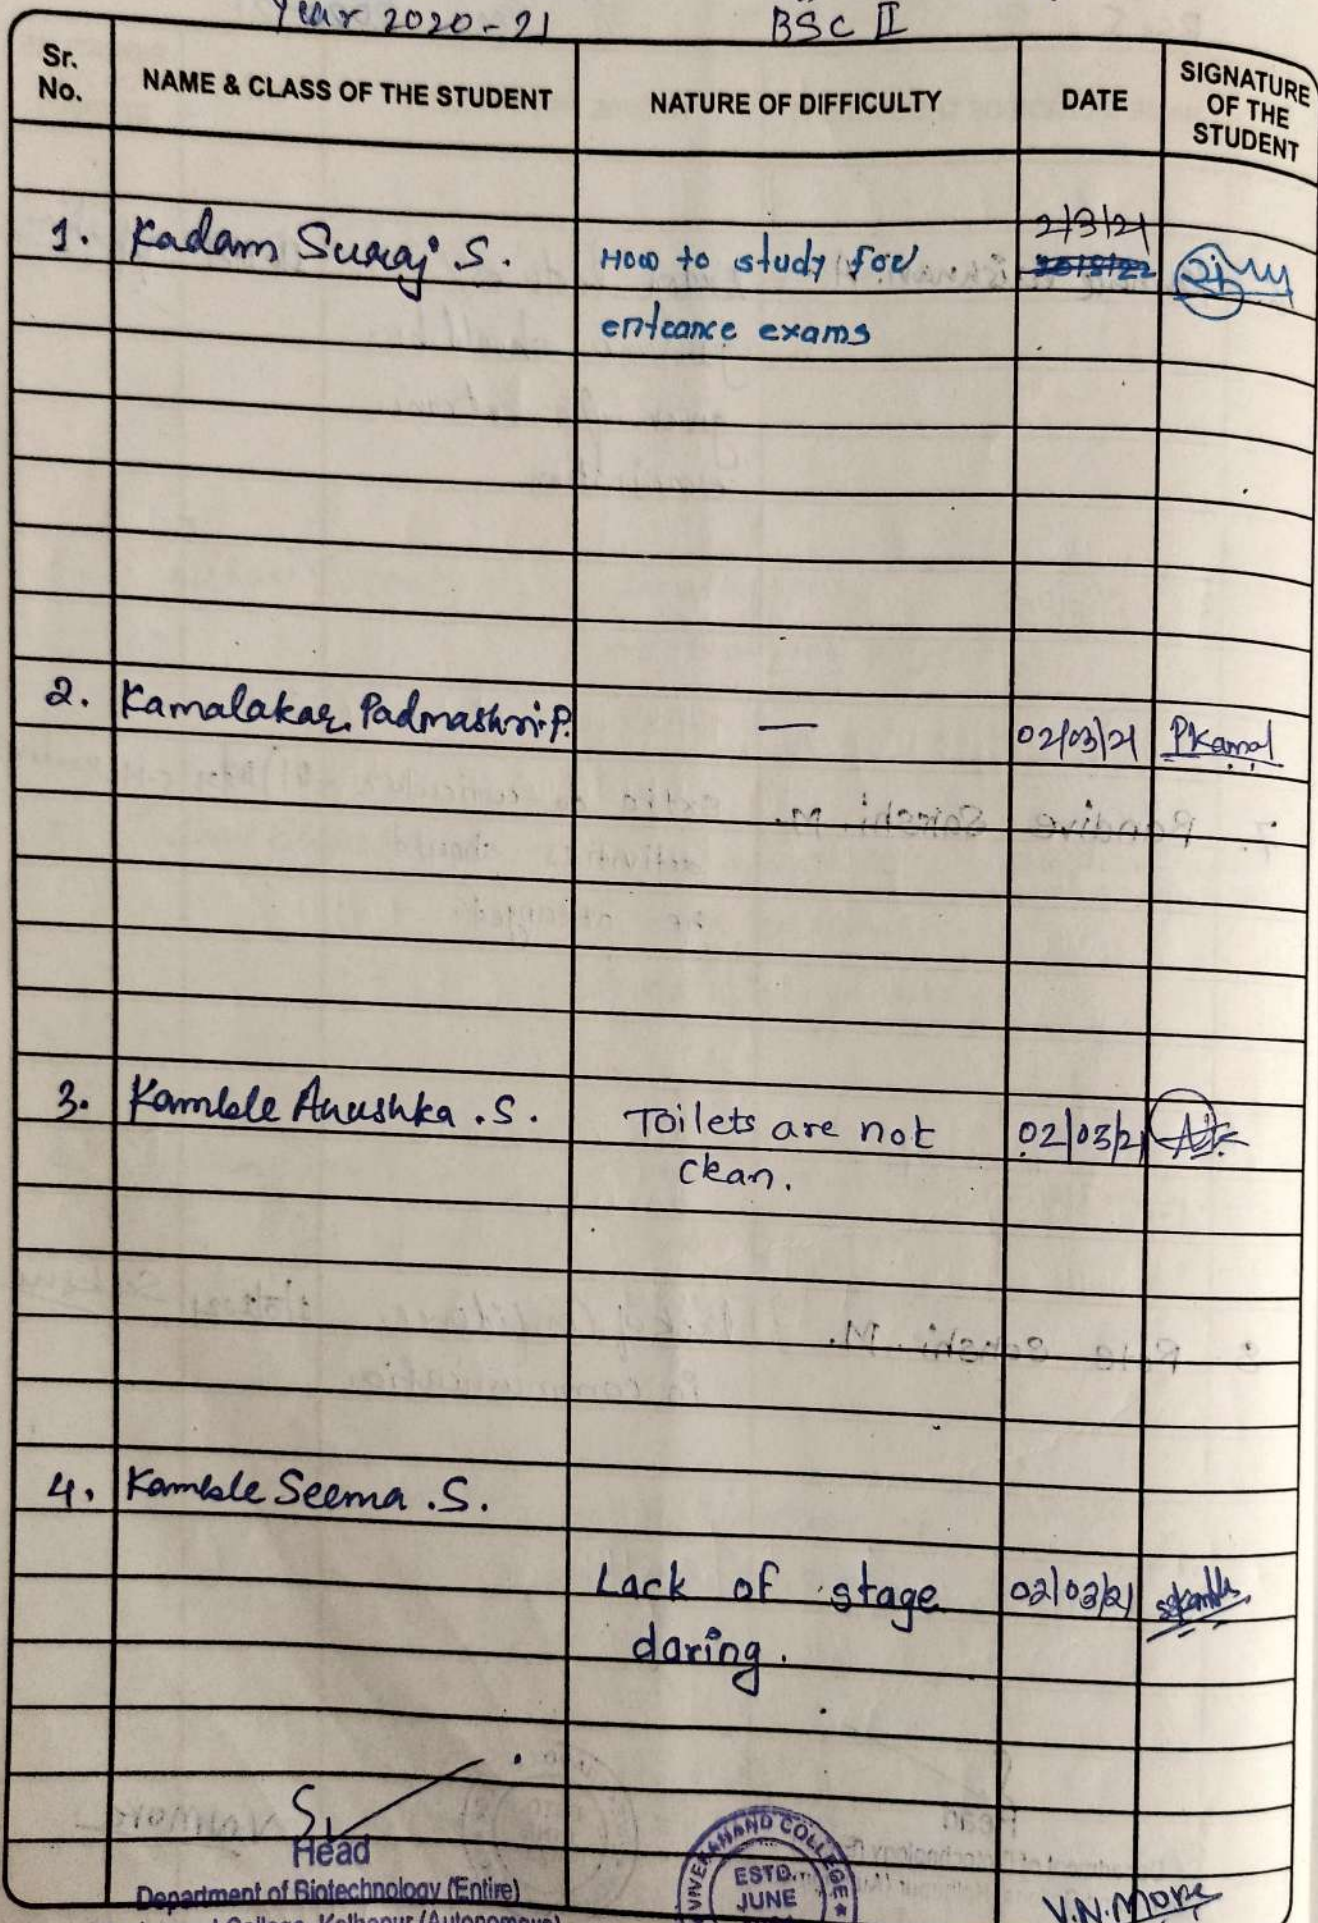 Year 2020-21 BSC II
Sr. No. NAME & CLASS OF THE STUDENT NATURE OF DIFFICULTY DATE SIGNATURE OF THE STUDENT
2/3/21
1. Kadam Suraj S. How to study for
entrance exams
2. Kamalakar Padmashri.P. — 02/03/21 PKamal
3. Kamble Anushka .S. Toilets are not 02/03/21
clean.
4. Kamble Seema .S.
Lack of stage 02/03/21 sskamble
daring.
Head
Department of Biotechnology (Entire)
College, Kolhapur (Autonomous)
VIVEKANAND COLLEGE
ESTD.
JUNE
V.N.More